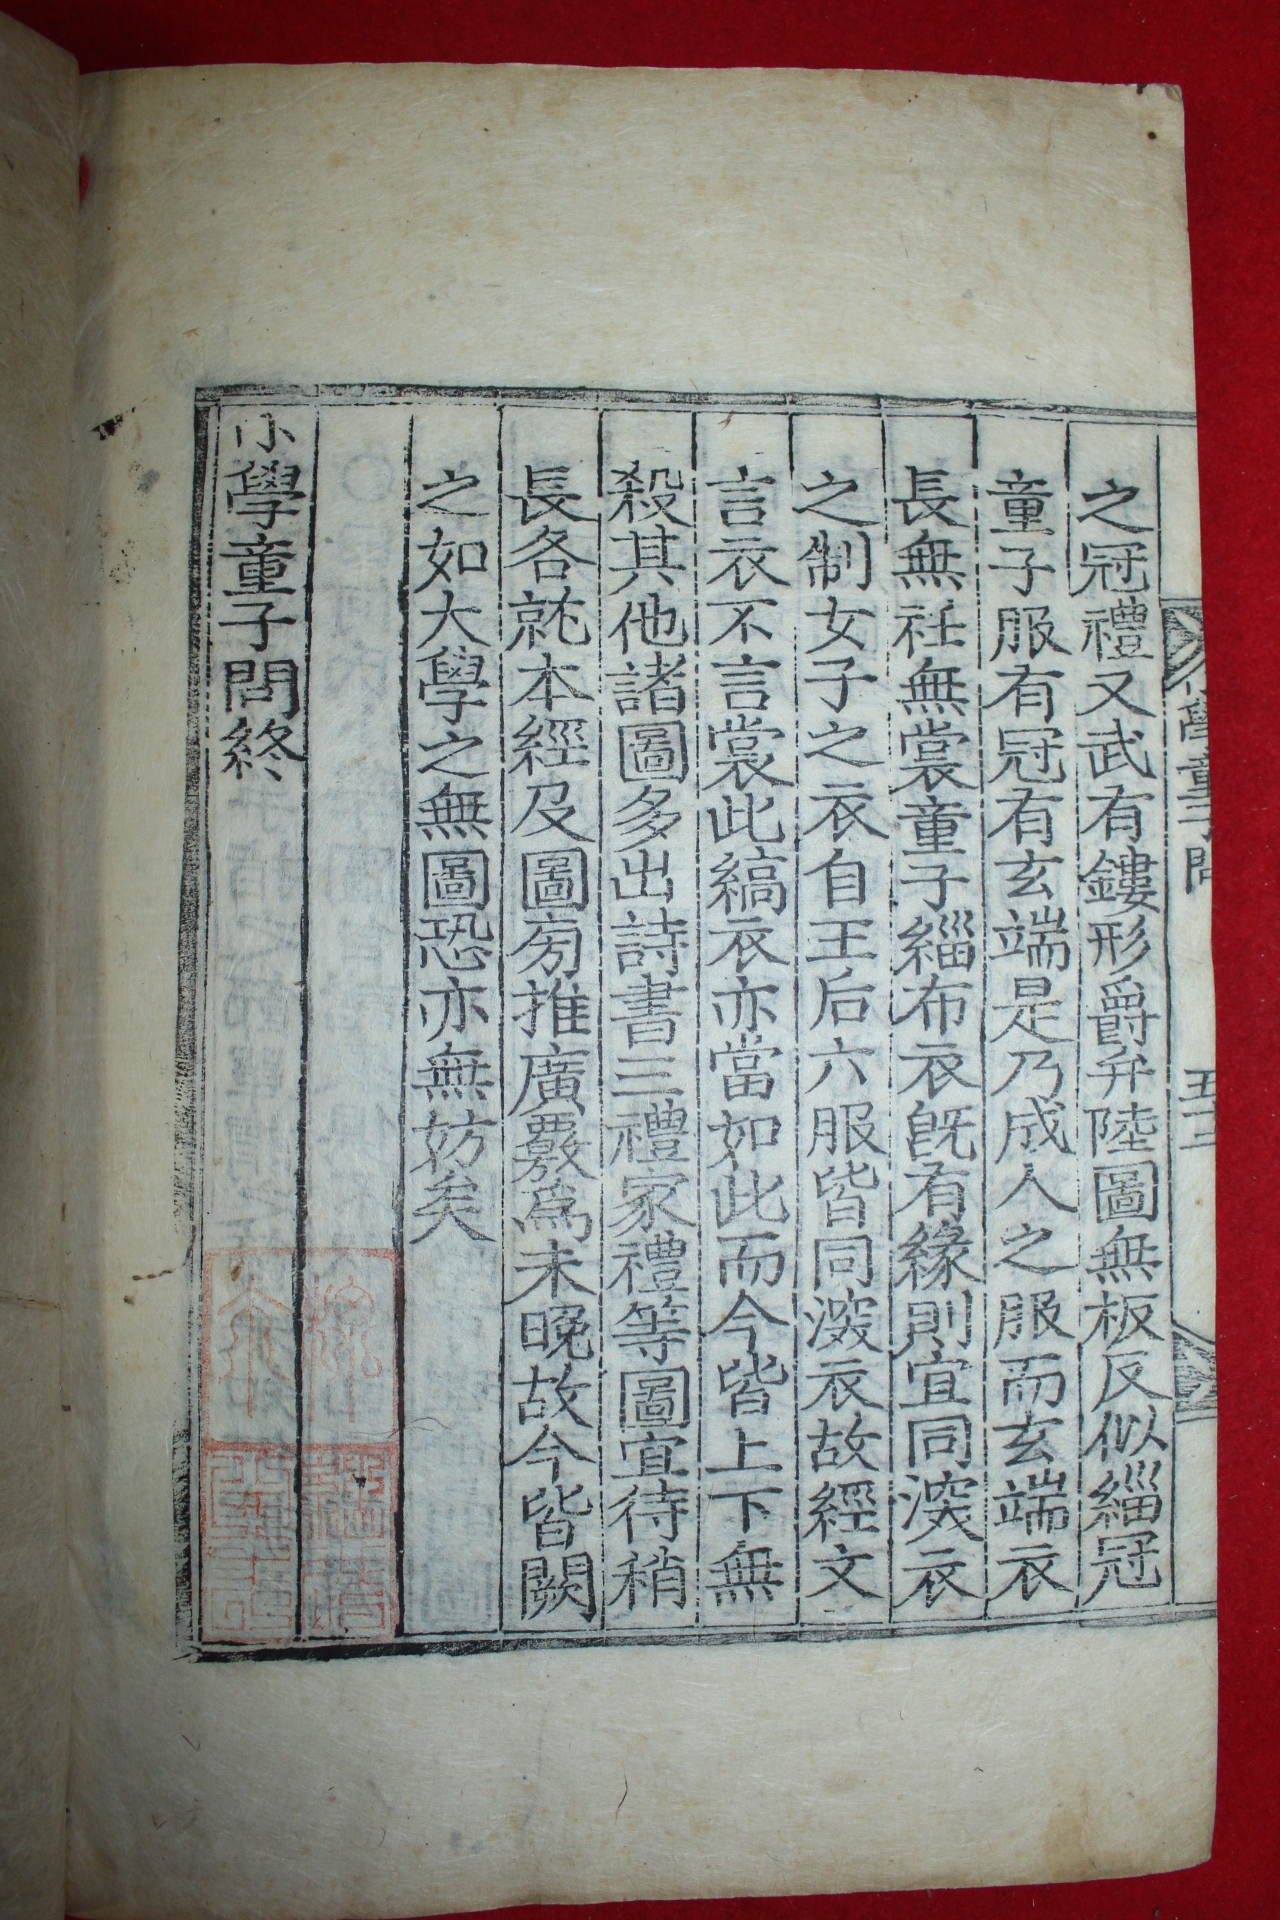 之冠禮又武有鏤形爵弁陸圖無板反似緇冠
童子服有冠有玄端是乃成人之服而玄端衣
長無衽無裳童子緇布衣旣有緣則宜同深衣
之制女子之衣自王后六服皆同深衣故經文
言衣不言裳此縞衣亦當如此而今皆上下無
殺其他諸圖多出詩書三禮家禮等圖宜待稍
長各就本經及圖旁推廣覈爲未晚故今皆闕
之如大學之無圖恐亦無妨矣
小學童子問終
小學童子問